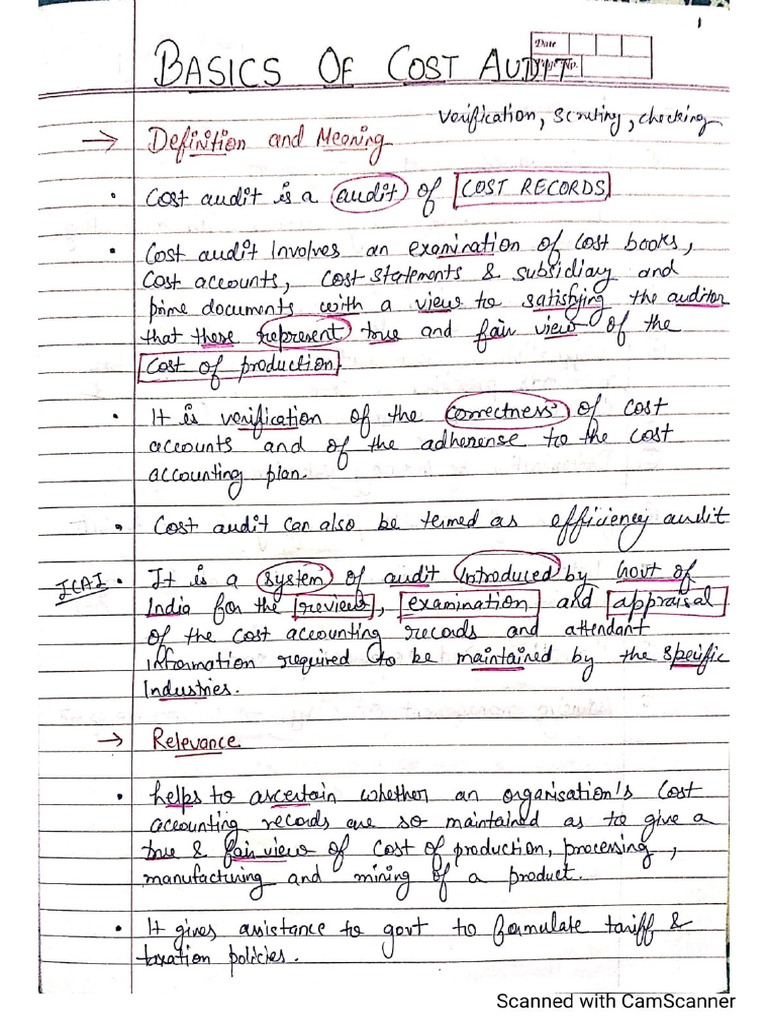 1
Date
BASICS OF COST AUDIT
verification, scruting, checking
→ Definition and Meaning
• Cost audit is a audit of COST RECORDS
• Cost audit involves an examination of cost books,
cost accounts, cost statements & subsidiay and
prime documents with a view to satisfying the auditor
that these represent true and fair view of the
Cost of production.
• It is verification of the correctness of cost
accounts and of the adherense to the cost
accounting plan.
• Cost audit can also be termed as efficiency audit
ICAI • It is a system of audit introduced by Govt of
India for the review, examination and appraisal
of the cost accounting records and attendant
information required to be maintained by the specific
Industries.
→ Relevance
• helps to ascertain whether an organisation's cost
accounting records are so maintained as to give a
true & fair view of cost of production, processing,
manufacturing and mining of a product.
• It gives assistance to govt to formulate tariff &
taxation policies.
Scanned with CamScanner